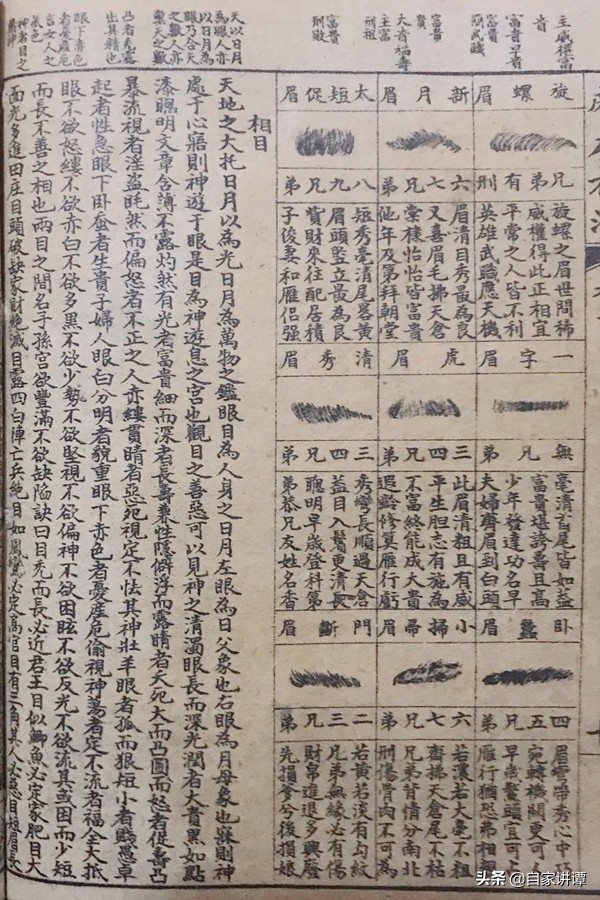 主威權富
貴
富貴
大貴福壽
主富
刑祖
富貴
刑敗
旋螺眉
兄弟有刑
旋螺之眉世間稀
威權得此正相宜
平常之人皆不利
英雄武職應天機
新月眉
六七兄弟
眉清目秀最為良
又喜眉毛拂天倉
棠棣怡怡皆富貴
他年及第拜朝堂
太短促眉
八九兄弟
短秀毫清尾畧黃
眉頭豎立最為良
貲財來往配居積
子俊妻和雁侶強
一字眉
無兄弟
毫清首尾皆如蓋
富貴堪誇壽且高
少年發達功名早
夫婦齊眉到白頭
虎眉
三四兄弟
此眉清粗且有威
平生胆志有施為
不富終能成大貴
遐齡修算雁行虧
清秀眉
三四兄弟
秀彎長順過天倉
蓋目入鬢更清長
聰明早歲登科第
弟恭兄友姓名香
臥蠶眉
四五兄弟
眉彎帶秀心中巧
宛轉機關更可
早歲鰲頭宜可占
雁行猶恐弟相
小掃帚眉
六七兄弟
若濃若大毫不粗
齊拂天倉尾不枯
兄弟背情分南北
刑傷骨肉不可為
門斷眉
二三兄弟
若黃若淡有勾紋
兄弟無緣必有傷
財帛進退多興廢
先損爹兮後損娘
天以日月
為眼人亦
以日月為
眼乃合天
之數人亦
凸者尤露
出其精也
眼下赤色
言女人之
氣色
神者目之
相目
天地之大托日月以為光日月為萬物之鑑眼目為人身之日月左眼為日父象也右眼為月母象也寐則神
處于心寤則神遊于眼是目為神遊息之宮也觀目之善惡可以見神之清濁眼長而深光潤者大貴黑如點
漆聰明文章含薄不露灼然有光者富貴細而深者長壽兼性隱僻浮而露睛者夭死大而凸圓而怒者促壽凸
暴流視者淫盜眊然而偏怒者不正之人赤縷貫睛者惡死視定不怯其神壯羊眼者孤而狠短小者賤愚卓
起者性急眼下卧蚕者生貴子婦人眼白分明者貌重眼下赤色者憂產厄偷視神蕩者定不流者福全大抵
眼不欲怒縷不欲赤白不欲多黑不欲少勢不欲竪視不欲偏神不欲困眩不欲反光不欲流其或因而少短
而長不善之相也兩目之間名子孫宮欲豐滿不欲缺陷訣曰目秀而長必近君王目似鯽魚必定家肥目大
面光多進田庄目頭破缺家財絶滅目露四白陣亡兵絶目如鳳鸞必定高官目有三角其人必惡目短眉長
头条 @自家讲谭